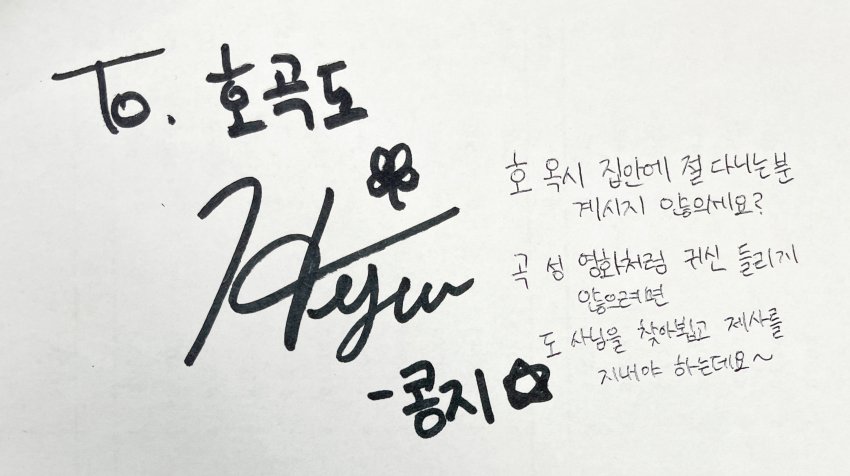 To. 호곡도
Hyun
-콩지
호 옥시 집안에 절 다니는분
계시지 않의세요?
곡 성 영화처럼 귀신 들리기
않으려면
도 사님을 찾아뵙고 제사를
지내야 하는데요~